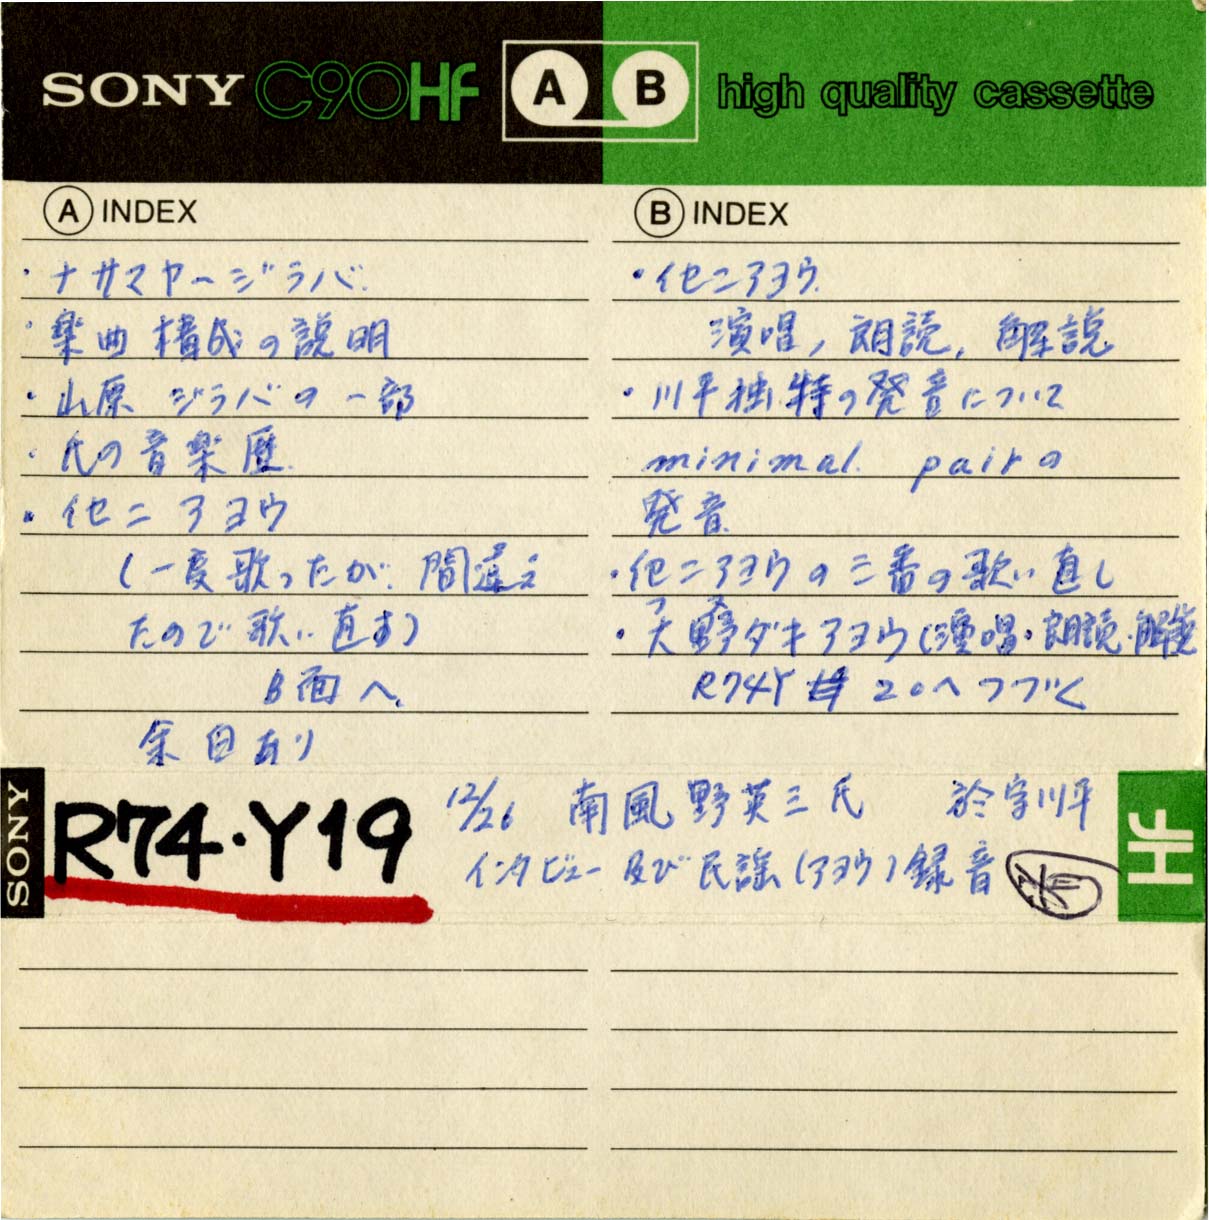 SONY C90HF A B high quality cassette
A INDEX
・ナサマヤージラバ.
・楽曲構成の説明
・山原 ジラバの一部
・氏の音楽歴.
・化ニアヨウ
(一度歌ったが、間違え
たので歌い直す)
B面へ.
余白あり
B INDEX
・化ニアヨウ.
演唱, 朗読, 解説
・川平独特の発音について
minimal pairの
発音.
・化ニアヨウの三番の歌い直し
・大野ダキアヨウ(演唱・朗読・解説
R74Y # 20へつづく
SONY
R74・Y19
12/26 南風野英三氏 於字川平
インタビュー及び民謡(アヨウ)録音
HF